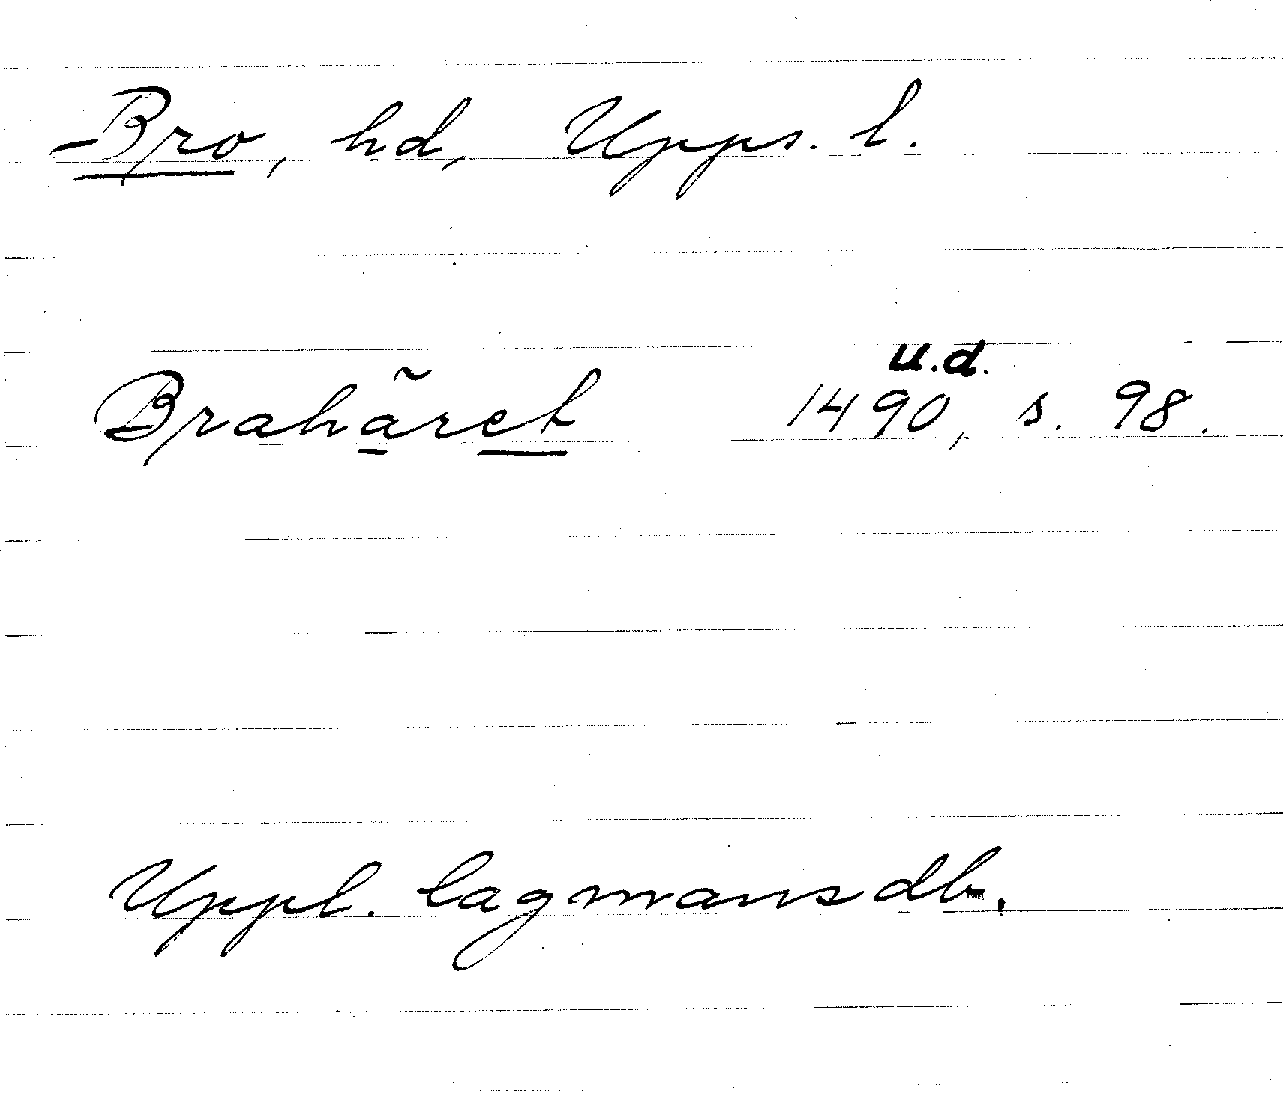 Bro, hd, Upps. l.
u.d.
Brahãret 1490, s. 98.
Uppl. lagmansdb.